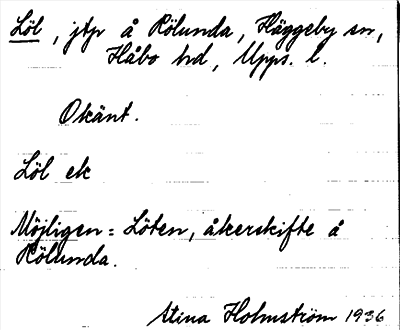 Löl, jtp å Rölunda, Häggeby sn,
Håbo hd, Upps. l.
Okänt.
Löl ek
Möjligen = Löten, åkerskifte å
Rölunda.
Stina Holmström 1936